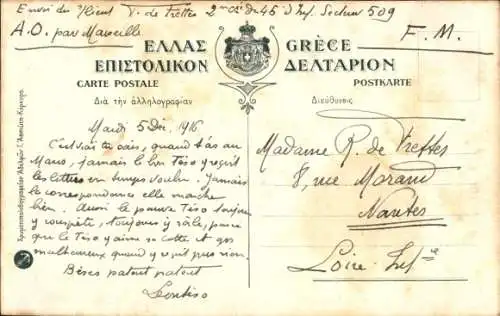 Envoi du Lieut V. de Trettes 2me Cie du 45 d'Inf. Secteur 509
A.O. par Marseille
F.M.
ΕΛΛΑΣ GRÈCE
ΕΠΙΣΤΟΛΙΚΟΝ ΔΕΛΤΑΡΙΟΝ
CARTE POSTALE POSTKARTE
Διὰ τὴν ἀλληλογραφίαν
Διεύθυνσις
Mardi 5 Déc. 1916
C'est vrai tu sais, quand t'as au
Mans, jamais le bon Tiso y reçoit
les lettres en temps voulu. Jamais
la correspondance elle marche
bien. Aussi le pauvre Tiso toujours
y rouspète, toujours y râle, parce
que le Tiso y aime sa Cotte et est
malheureux quand y voit pas rien.
Bises patout patout
Madame R. de Trettes
8, rue Morand
Nantes
Loire Infre